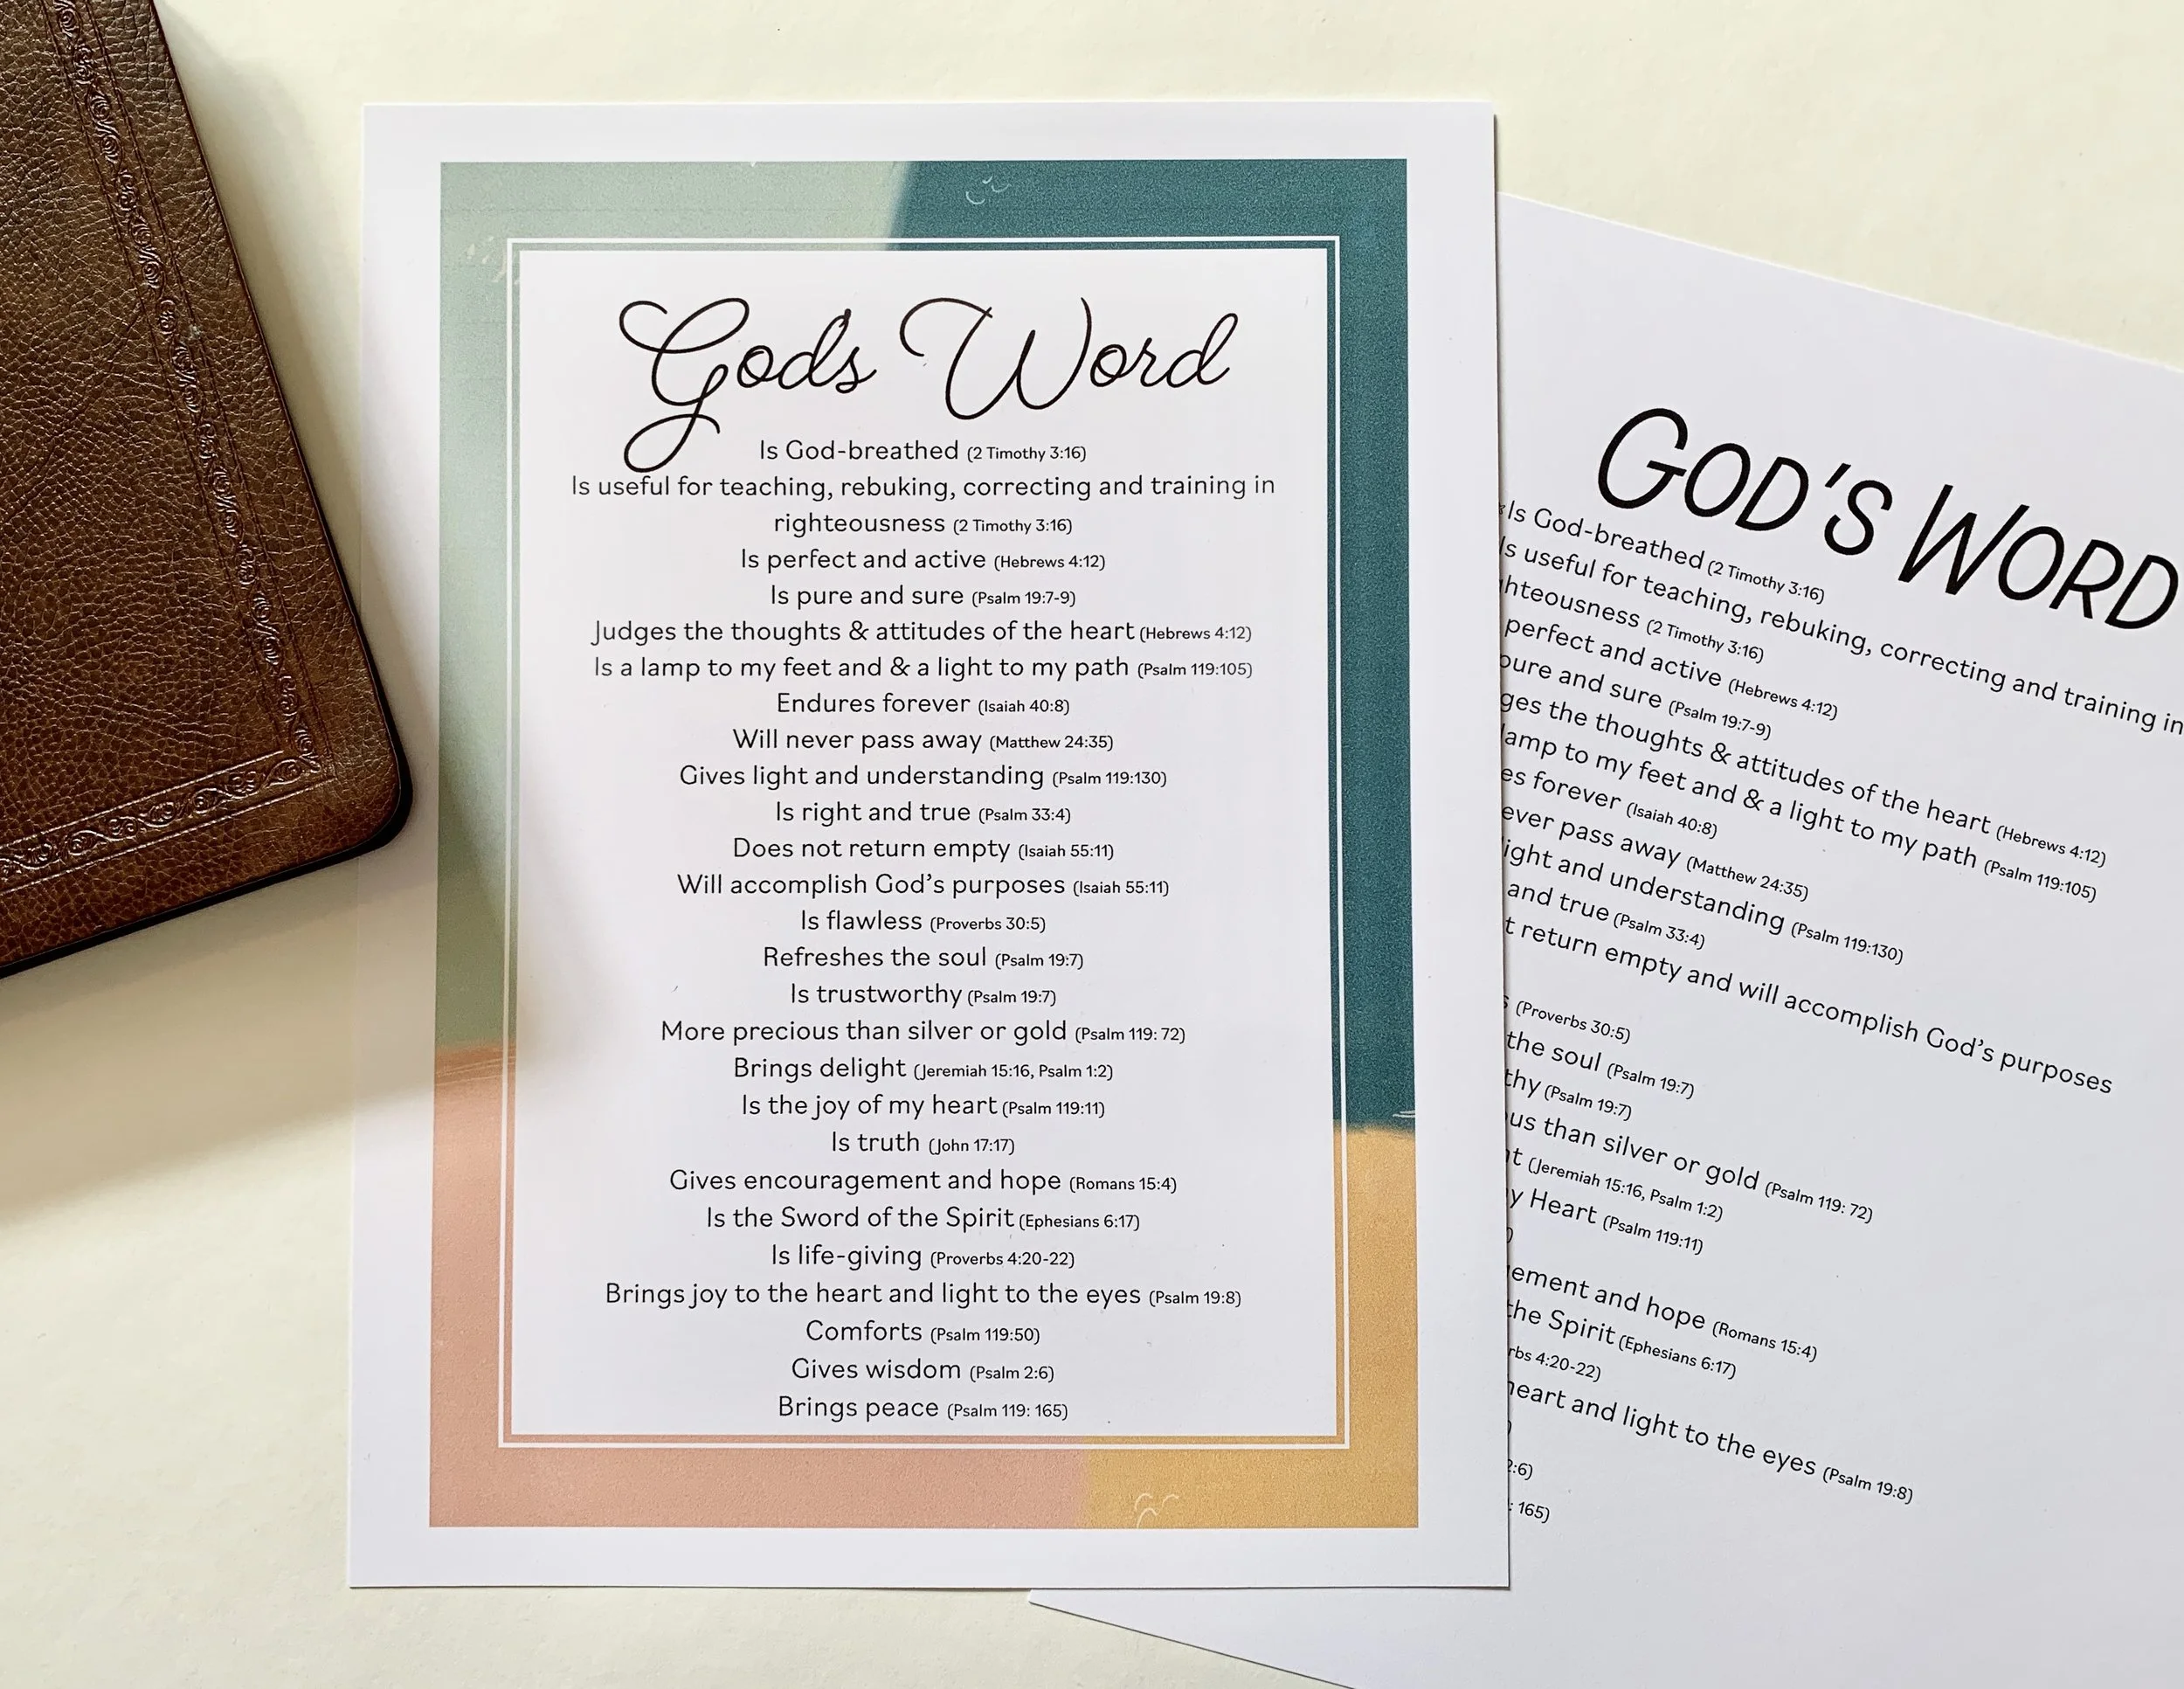 Gods Word
Is God-breathed (2 Timothy 3:16)
Is useful for teaching, rebuking, correcting and training in
righteousness (2 Timothy 3:16)
Is perfect and active (Hebrews 4:12)
Is pure and sure (Psalm 19:7-9)
Judges the thoughts & attitudes of the heart (Hebrews 4:12)
Is a lamp to my feet and & a light to my path (Psalm 119:105)
Endures forever (Isaiah 40:8)
Will never pass away (Matthew 24:35)
Gives light and understanding (Psalm 119:130)
Is right and true (Psalm 33:4)
Does not return empty (Isaiah 55:11)
Will accomplish God's purposes (Isaiah 55:11)
Is flawless (Proverbs 30:5)
Refreshes the soul (Psalm 19:7)
Is trustworthy (Psalm 19:7)
More precious than silver or gold (Psalm 119: 72)
Brings delight (Jeremiah 15:16, Psalm 1:2)
Is the joy of my heart (Psalm 119:11)
Is truth (John 17:17)
Gives encouragement and hope (Romans 15:4)
Is the Sword of the Spirit (Ephesians 6:17)
Is life-giving (Proverbs 4:20-22)
Brings joy to the heart and light to the eyes (Psalm 19:8)
Comforts (Psalm 119:50)
Gives wisdom (Psalm 2:6)
Brings peace (Psalm 119: 165)
GOD'S WORD
Is God-breathed (2 Timothy 3:16)
Is useful for teaching, rebuking, correcting and training in
hteousness (2 Timothy 3:16)
perfect and active (Hebrews 4:12)
pure and sure (Psalm 19:7-9)
ges the thoughts & attitudes of the heart (Hebrews 4:12)
lamp to my feet and & a light to my path (Psalm 119:105)
es forever (Isaiah 40:8)
ever pass away (Matthew 24:35)
ight and understanding (Psalm 119:130)
and true (Psalm 33:4)
t return empty and will accomplish God's purposes
s (Proverbs 30:5)
the soul (Psalm 19:7)
thy (Psalm 19:7)
us than silver or gold (Psalm 119: 72)
t (Jeremiah 15:16, Psalm 1:2)
y Heart (Psalm 119:11)
)
ement and hope (Romans 15:4)
the Spirit (Ephesians 6:17)
rbs 4:20-22)
heart and light to the eyes (Psalm 19:8)
)
2:6)
: 165)